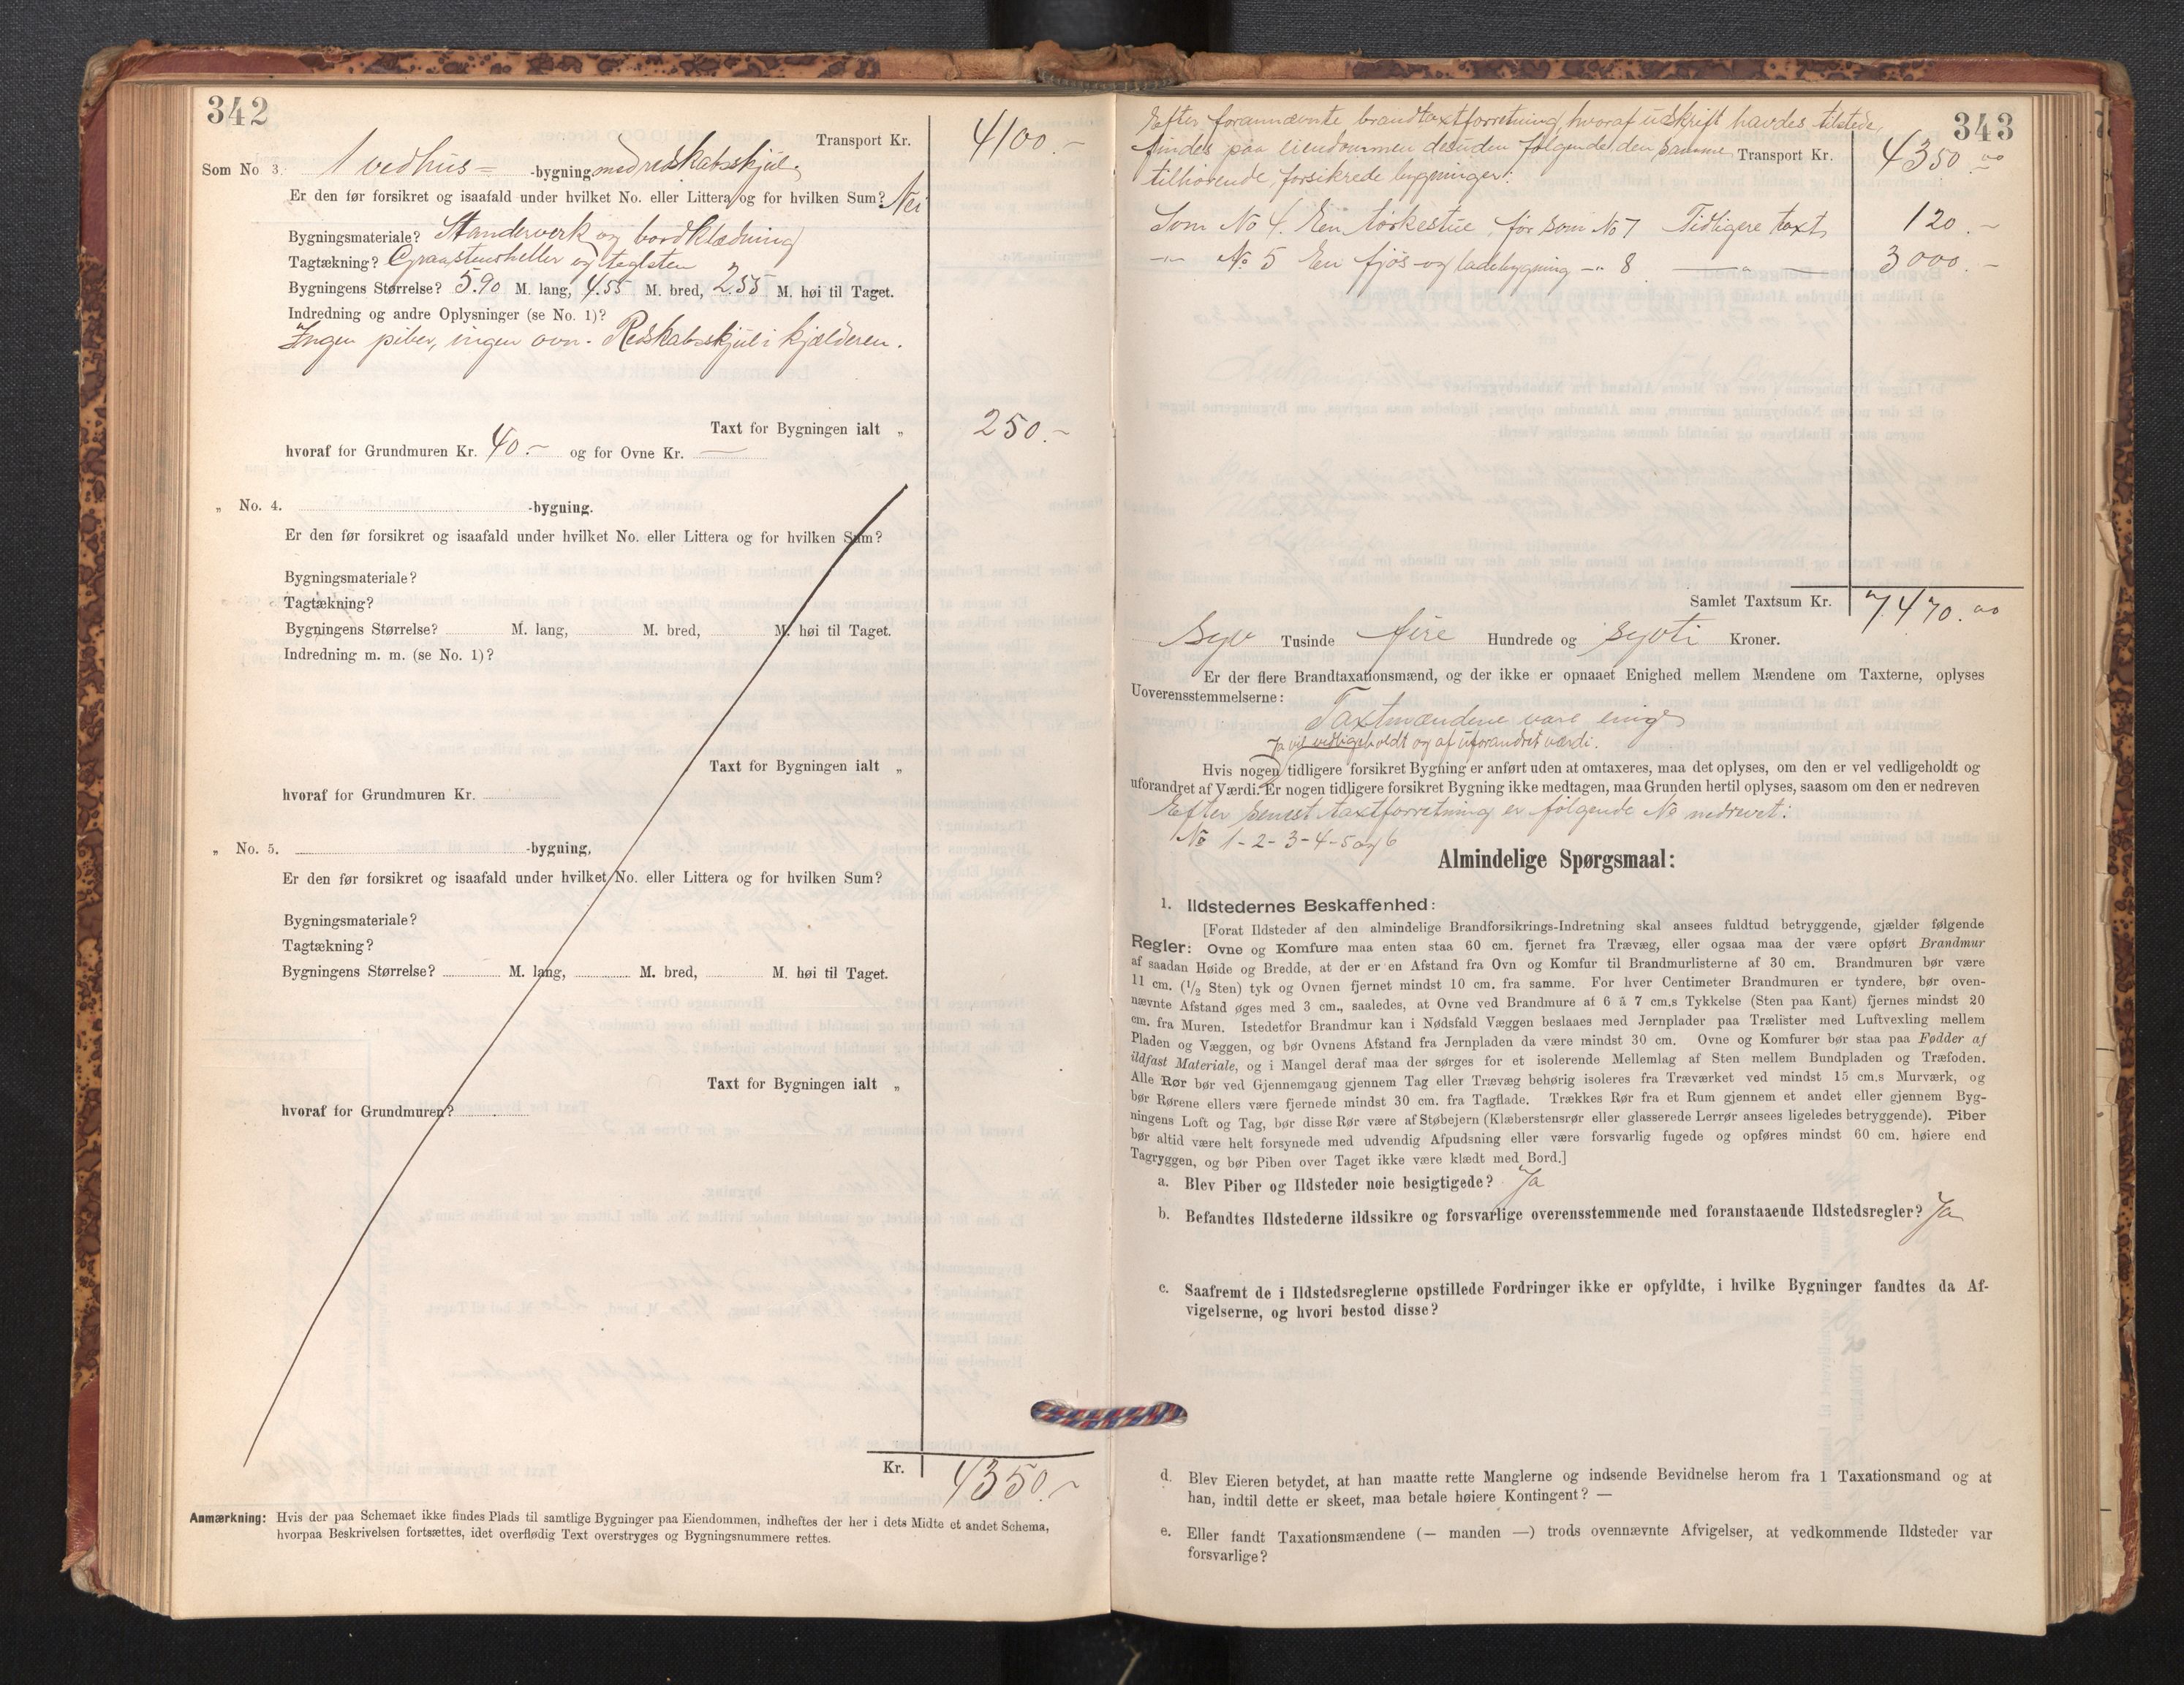 342
Transport Kr. 4100.-
Som No 3. 1 vedhus= -bygning med redskabsskjul.
Er den før forsikret og isaafald under hvilket No. eller Littera og for hvilken Sum? Nei
Bygningsmateriale? Standerverk og bordklædning
Tagtækning? Graastensheller og taglsten
Bygningens Størrelse? 5.90 M. lang, 4.55 M. bred, 2.55 M. høi til Taget.
Indredning og andre Oplysninger (se No. 1)?
Ingen piber, ingen ovn. Redskabsskjul i kjælderen.
Taxt for Bygningen ialt „ 250.-
hvoraf for Grundmuren Kr. 40.- og for Ovne Kr. —
„ No. 4. -bygning.
Er den før forsikret og isaafald under hvilket No. eller Littera og for hvilken Sum?
Bygningsmateriale?
Tagtækning?
Bygningens Størrelse? M. lang, M. bred, M. høi til Taget.
Indredning m. m. (se No. 1)?
Taxt for Bygningen ialt „
hvoraf for Grundmuren Kr.
„ No. 5. -bygning,
Er den før forsikret og isaafald under hvilket No. eller Littera og for hvilken Sum?
Bygningsmateriale?
Tagtækning?
Bygningens Størrelse? M. lang, M. bred, M. høi til Taget.
Taxt for Bygningen ialt „
hvoraf for Grundmuren?
Kr. 4350.-
Anmærkning: Hvis der paa Schemaet ikke findes Plads til samtlige Bygninger paa Eiendommen, indheftes der her i dets Midte et andet Schema,
hvorpaa Beskrivelsen fortsættes, idet overflødig Text overstryges og Bygningsnummere rettes.
343
Efter forannævnte brandtaxtforretning, hvoraf udskrift havdes tilstede,
findes paa eiendommen desuden følgende, den samme Transport Kr. 4350.00
tilhørende, forsikrede bygninger:
Som No 4. En tørkestue, før som No 7 Tidligere taxt 120.-
-"- No 5 En fjös- og ladebygning -"- 8 —"— 3000.-
Samlet Taxtsum Kr. 7.470.00
Syv Tusinde fire Hundrede og sytti Kroner.
Er der flere Brandtaxationsmænd, og der ikke er opnaaet Enighed mellem Mændene om Taxterne, oplyses
Uoverensstemmelserne: Taxtmændene vare enige
Ja vel vedligeholdt og af uforandret værdi.
Hvis nogen tidligere forsikret Bygning er anført uden at omtaxeres, maa det oplyses, om den er vel vedligeholdt og
uforandret af Værdi. Er nogen tidligere forsikret Bygning ikke medtagen, maa Grunden hertil oplyses, saasom om den er nedreven
Efter senest taxtforretning er følgende No nedrevet:
No 1-2-3-4-5 og 6
Almindelige Spørgsmaal:
1. Ildstedernes Beskaffenhed:
[Forat Ildsteder af den almindelige Brandforsikrings-Indretning skal ansees fuldtud betryggende, gjælder følgende
Regler: Ovne og Komfure maa enten staa 60 cm. fjernet fra Trævæg, eller ogsaa maa der være opført Brandmur
af saadan Høide og Bredde, at der er en Afstand fra Ovn og Komfur til Brandmurlisterne af 30 cm. Brandmuren bør være
11 cm. (1/2 Sten) tyk og Ovnen fjernet mindst 10 cm. fra samme. For hver Centimeter Brandmuren er tyndere, bør oven-
nævnte Afstand øges med 3 cm., saaledes, at Ovne ved Brandmure af 6 à 7 cm.s Tykkelse (Sten paa Kant) fjernes mindst 20
cm. fra Muren. Istedetfor Brandmur kan i Nødsfald Væggen beslaaes med Jernplader paa Trælister med Luftvexling mellem
Pladen og Væggen, og bør Ovnens Afstand fra Jernpladen da være mindst 30 cm. Ovne og Komfurer bør staa paa Fødder af
ildfast Materiale, og i Mangel deraf maa der sørges for et isolerende Mellemlag af Sten mellem Bundpladen og Træfoden.
Alle Rør bør ved Gjennemgang gjennem Tag eller Trævæg behørig isoleres fra Træværket ved mindst 15 cm.s Murværk, og
bør Rørene ellers være fjernede mindst 30 cm. fra Tagflade. Trækkes Rør fra et Rum gjennem et andet eller gjennem Byg-
ningens Loft og Tag, bør disse Rør være af Støbejern (Klæberstensrør eller glasserede Lerrør ansees ligeledes betryggende). Piber
bør altid være helt forsynede med udvendig Afpudsning eller være forsvarlig fugede og opføres mindst 60 cm. høiere end
Tagryggen, og bør Piben over Taget ikke være klædt med Bord.]
a. Blev Piber og Ildsteder nøie besigtigede? Ja
b. Befandtes Ildstederne ildssikre og forsvarlige overensstemmende med foranstaaende Ildstedsregler? Ja
c. Saafremt de i Ildstedsreglerne opstillede Fordringer ikke er opfyldte, i hvilke Bygninger fandtes da Af-
vigelserne, og hvori bestod disse?
d. Blev Eieren betydet, at han maatte rette Manglerne og indsende Bevidnelse herom fra 1 Taxationsmand og at
han, indtil dette er skeet, maa betale høiere Kontingent? —
e. Eller fandt Taxationsmændene (— manden —) trods ovennævnte Afvigelser, at vedkommende Ildsteder var
forsvarlige?